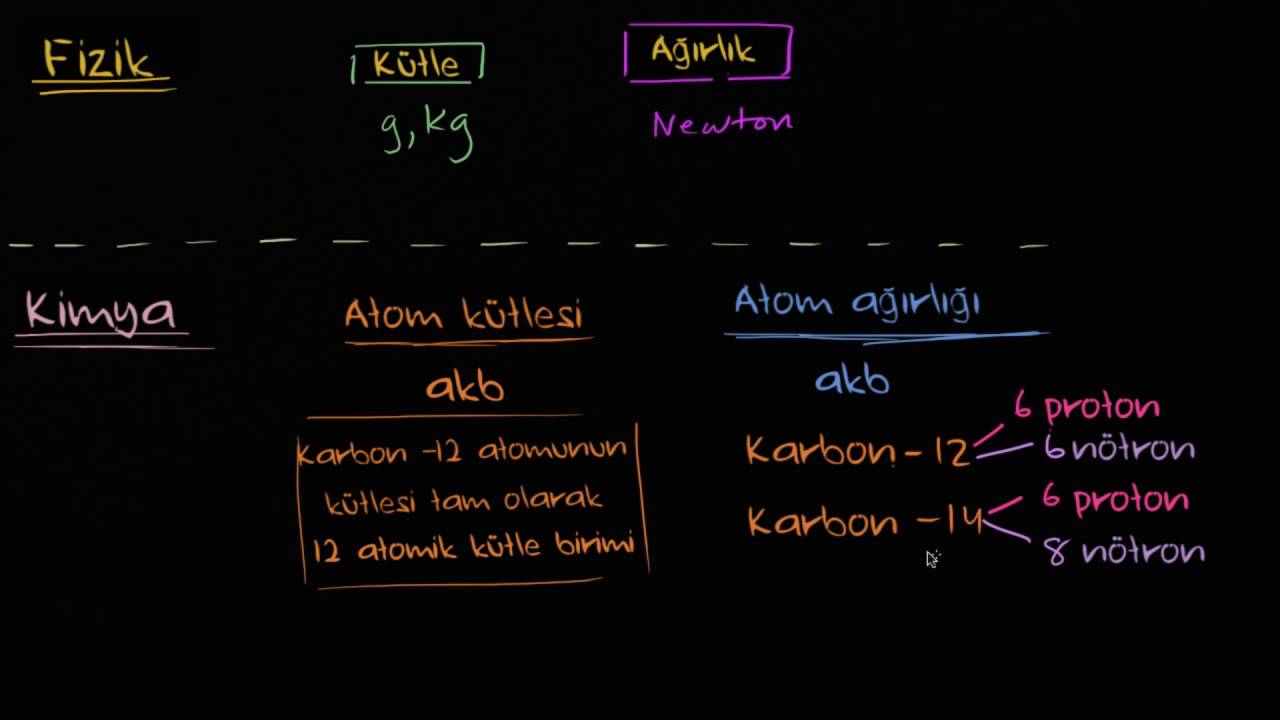 Fizik
Kütle
Ağırlık
g, kg
Newton
Kimya
Atom kütlesi
Atom ağırlığı
akb
akb
Karbon -12 atomunun
kütlesi tam olarak
12 atomik kütle birimi
Karbon - 12
6 proton
6 nötron
Karbon - 14
6 proton
8 nötron